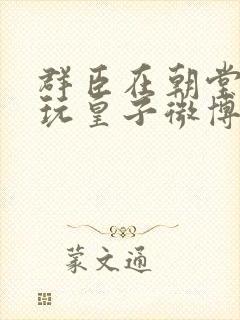 群臣在朝堂
玩皇子微博
蒙文通